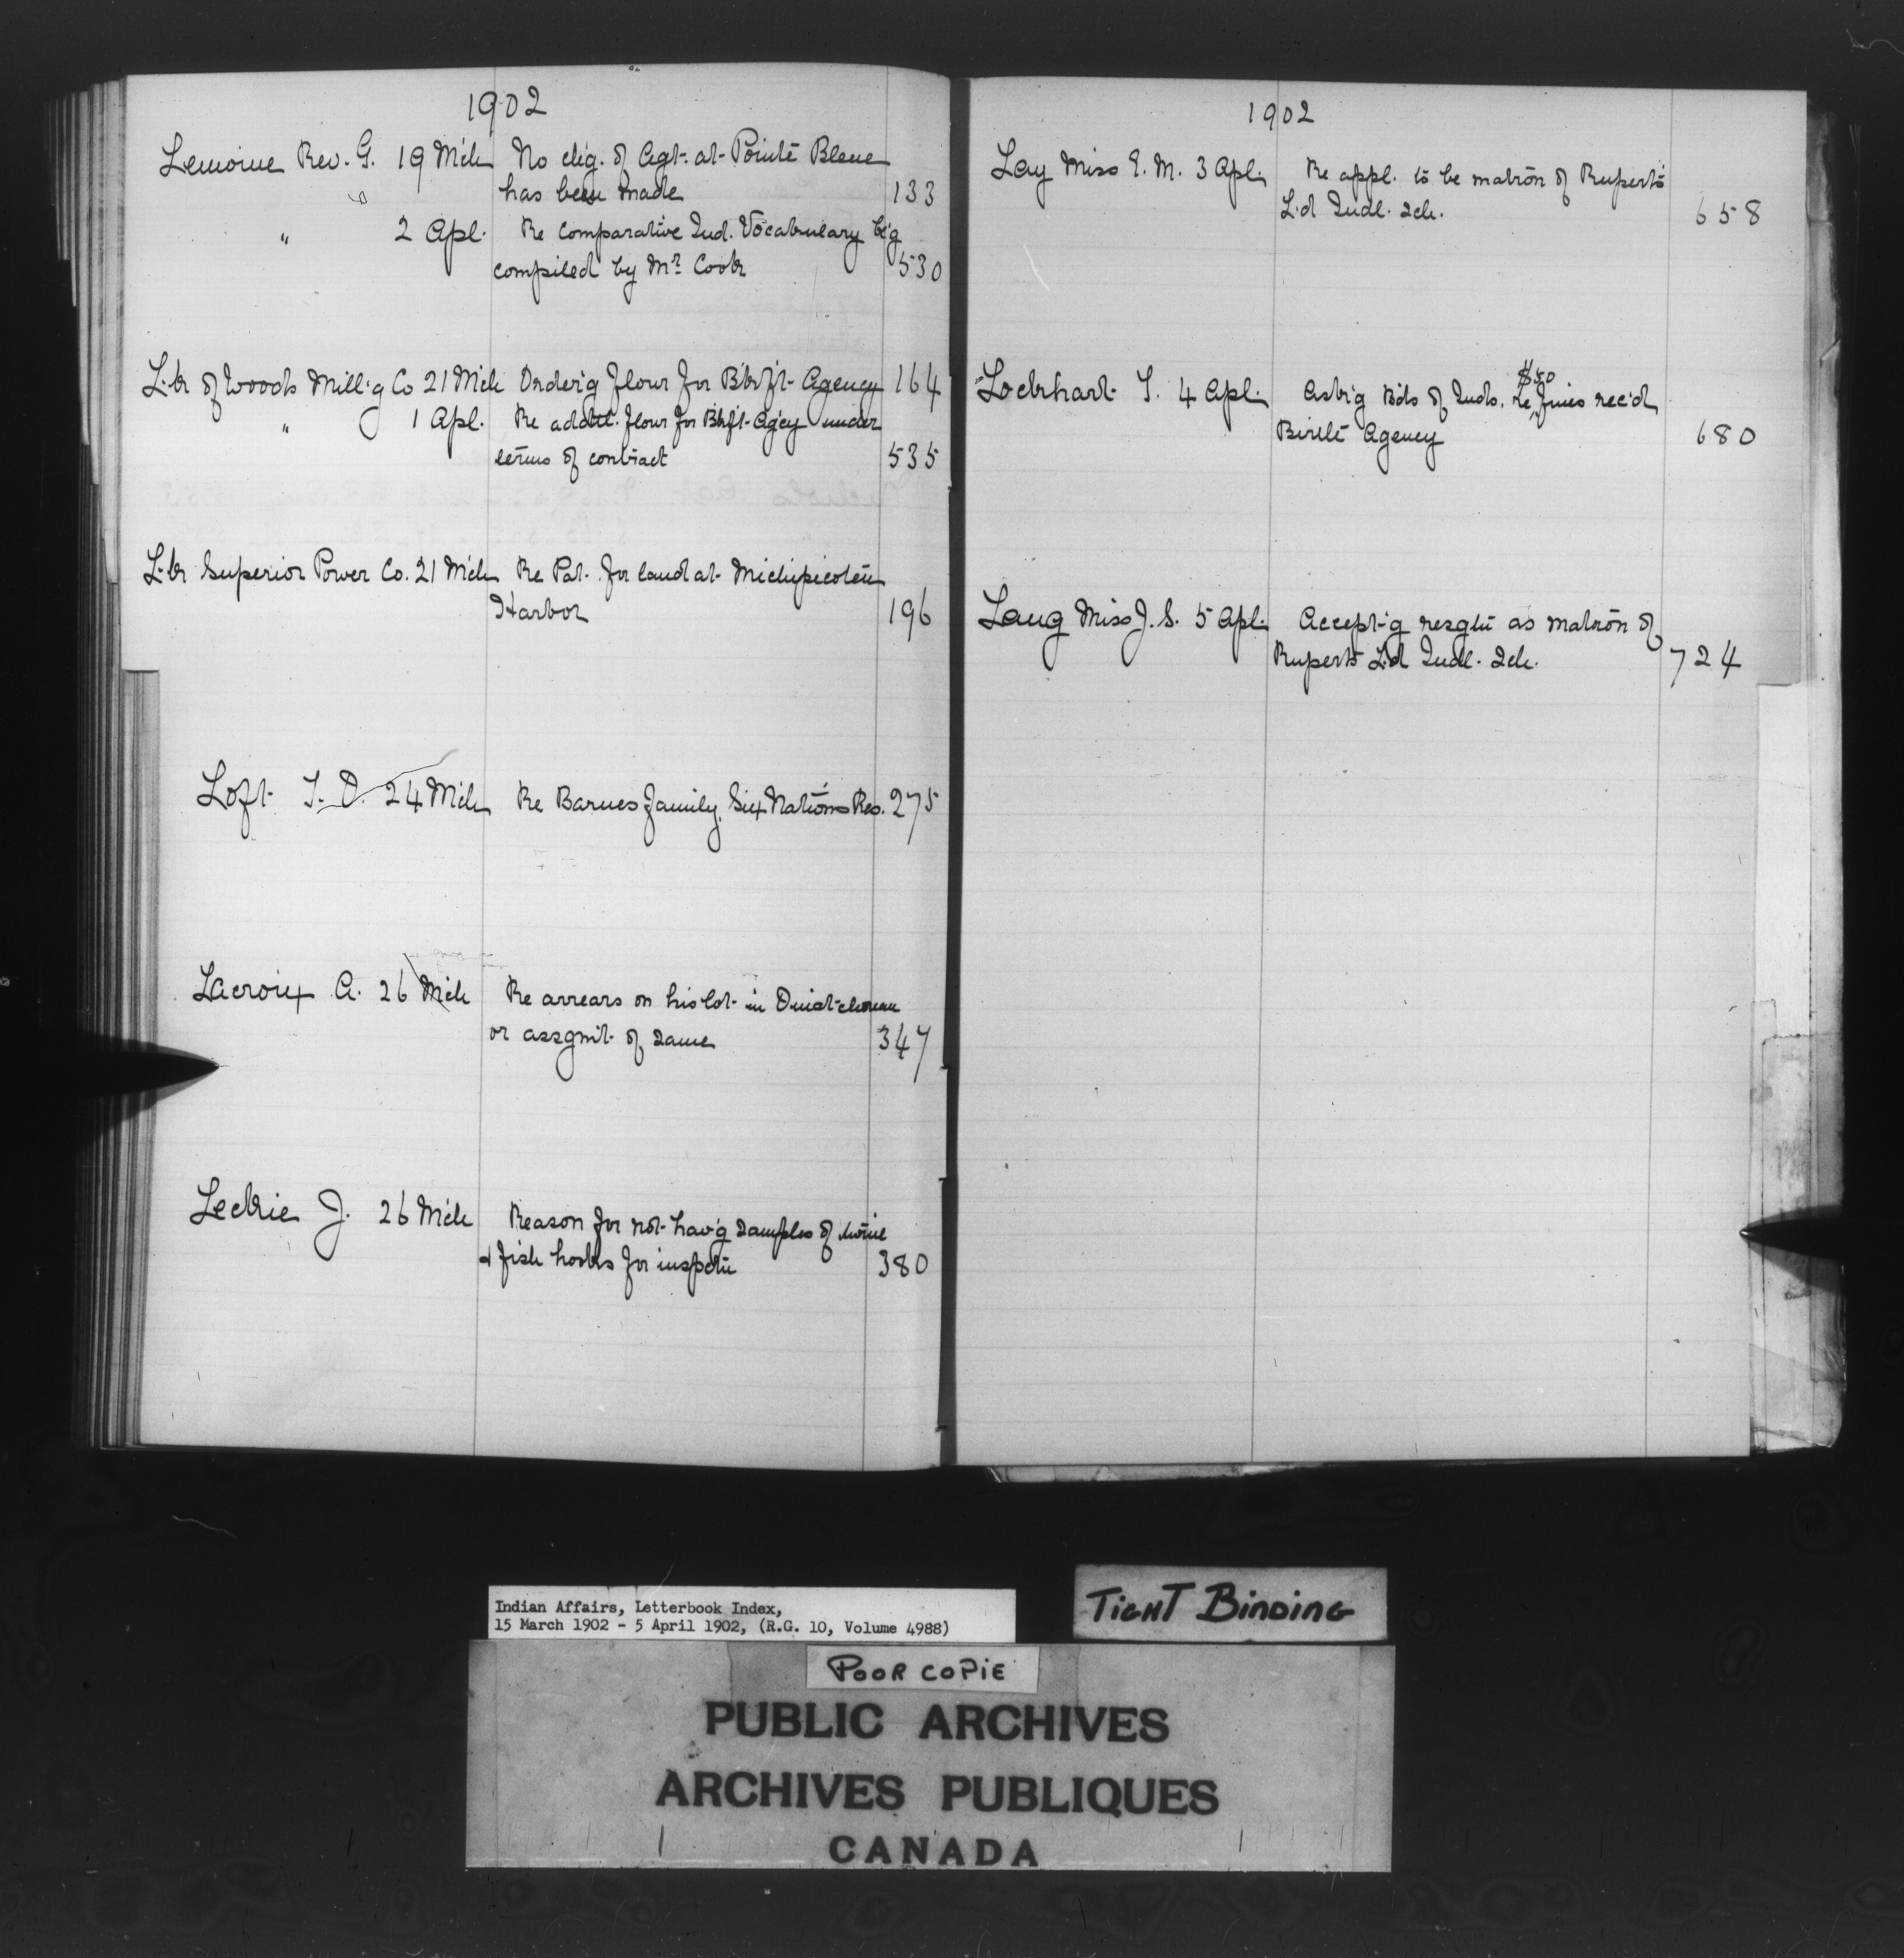 1902
Lemoine Rev. G. 19 Mch No chg. of Agt. at Pointe Bleue
has been made 133
" 2 Apl. Re Comparative Ind. Vocabulary b'g
compiled by Mr. Cook 530
L.k of Woods Mill'g Co 21 Mch Order'g flour for Bkft Agency 164
" 1 Apl. Re addtl. flour for Bkft Ag'cy under
terms of contract 535
L.k Superior Power Co. 21 Mch Re Pat. for land at Michipicoten
Harbor 196
Loft T. D. 24 Mch Re Barnes family, Six Nations Res. 275
Lacroix A. 26 Mch Re arrears on his lot in Ouiatchouan
or assgmt. of same 347
Leckie J. 26 Mch Reason for not hav'g samples of twine
& fish hooks for inspctn 380
1902
Lay Miss E. M. 3 Apl. Re appl. to be matron of Ruperts
L.d Indl. Sch. 658
Lockhart T. 4 Apl. Ask'g Bds of Inds. re $50 fines rec'd
Birtle Agency 680
Lang Miss J. S. 5 Apl. Accept'g resgtn as matron of
Ruperts L.d Indl. Sch. 724
Indian Affairs, Letterbook Index,
15 March 1902 - 5 April 1902, (R.G. 10, Volume 4988)
TIGHT BINDING
POOR COPIE
PUBLIC ARCHIVES
ARCHIVES PUBLIQUES
CANADA